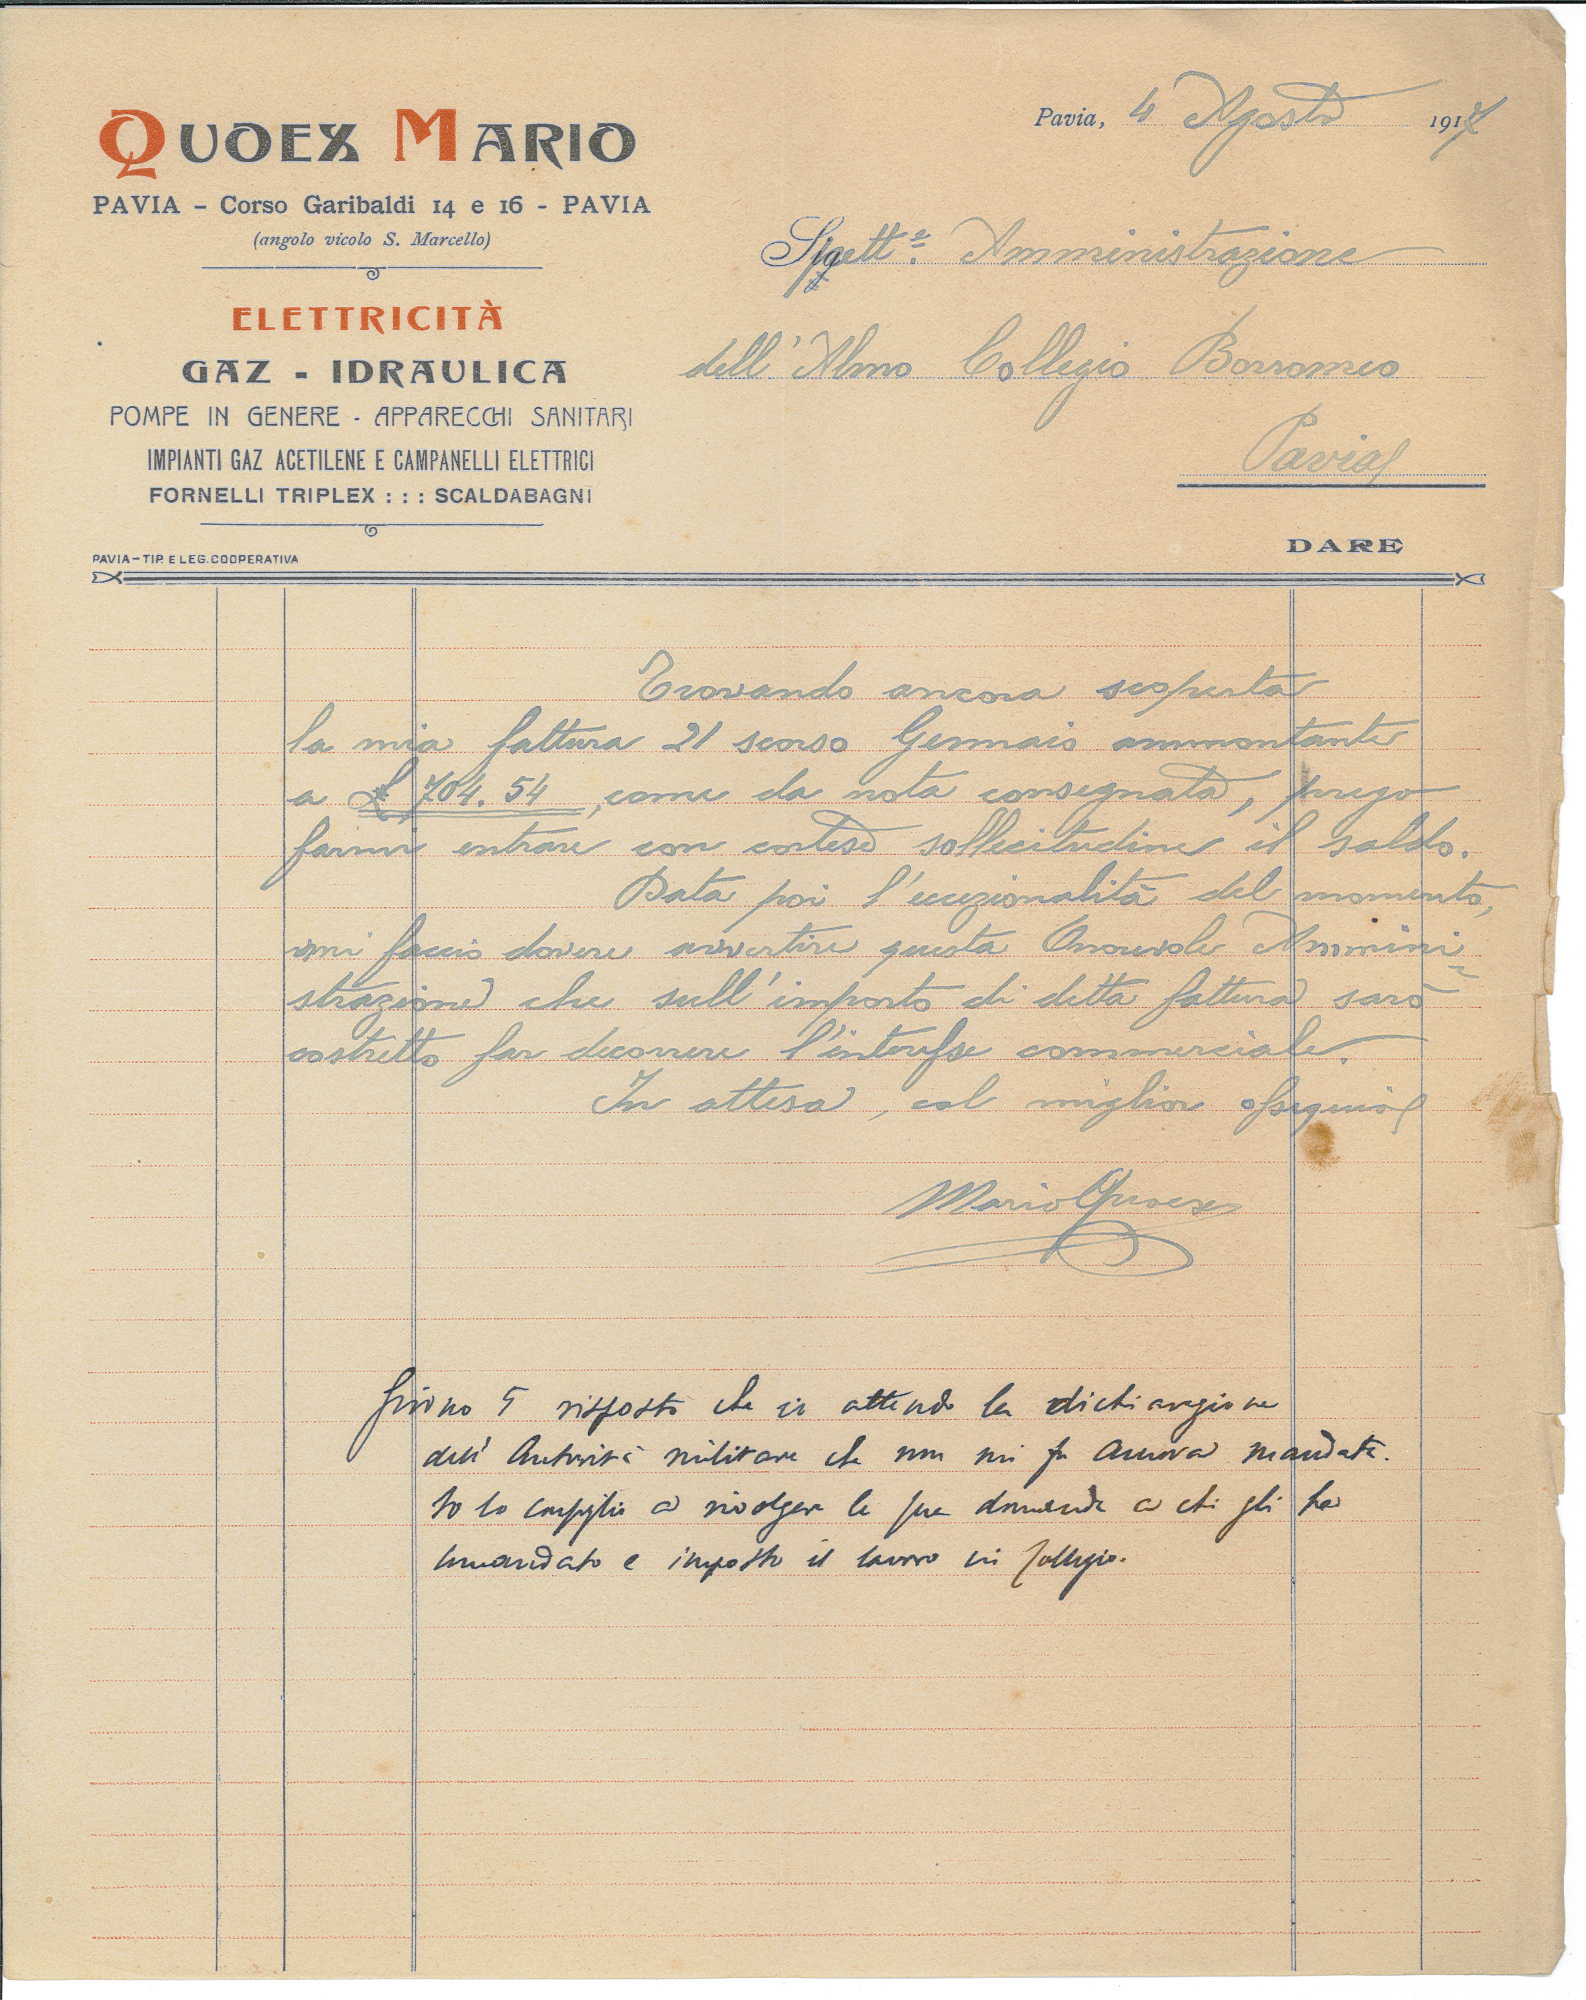 QUOEX MARIO
PAVIA - Corso Garibaldi 14 e 16 - PAVIA
(angolo vicolo S. Marcello)
ELETTRICITÀ
GAZ - IDRAULICA
POMPE IN GENERE - APPARECCHI SANITARI
IMPIANTI GAZ ACETILENE E CAMPANELLI ELETTRICI
FORNELLI TRIPLEX : : : SCALDABAGNI
PAVIA - TIP. E LEG. COOPERATIVA
Pavia, 4 Agosto 1917
Spett.e Amministrazione
dell'Almo Collegio Borromeo
Pavia
DARE
Trovando ancora scoperta
la mia fattura 21 scorso Gennaio ammontante
a £ 704.54, come da nota consegnata, prego
farmi entrare con cortese sollecitudine il saldo.
Data poi l'eccezionalità del momento,
mi faccio dovere avvertire questa Onorevole Ammini-
strazione che sull'importo di detta fattura sarò
costretto far decorrere l'interesse commerciale.
In attesa, col miglior ossequio
Mario Quoex
Giorno 5 risposto che io attendo la dichiarazione
dell'Autorità militare che non mi fu ancora mandata.
Io lo consiglio a rivolgere le sue domande a chi gli ha
comandato e imposto il lavoro in Collegio.